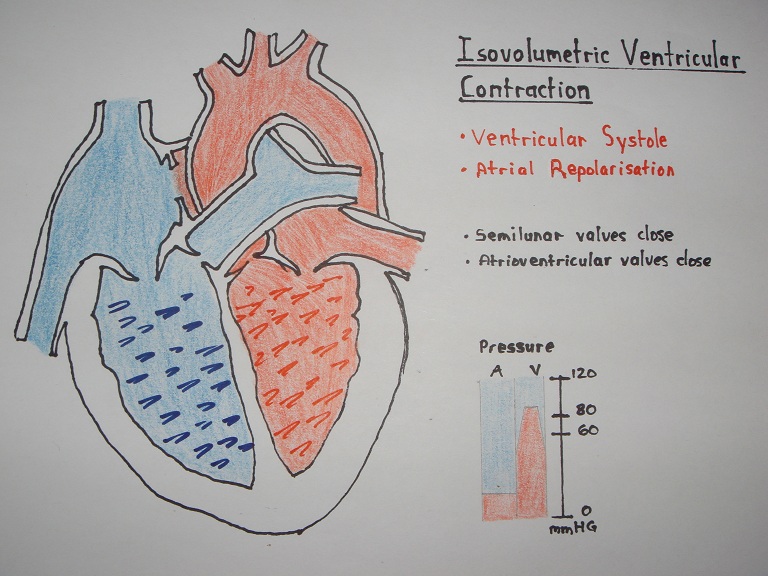 Isovolumetric Ventricular
Contraction
• Ventricular Systole
• Atrial Repolarisation
• Semilunar valves close
• Atrioventricular valves close
Pressure
A V
120
80
60
0
mmHG